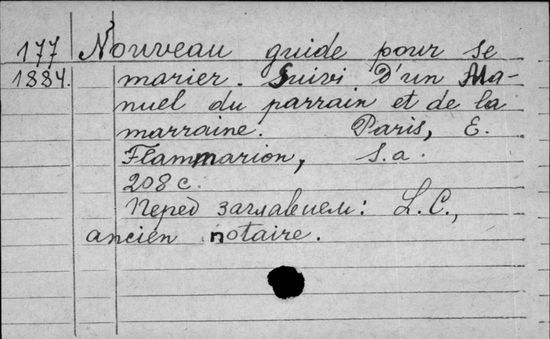 177 Nouveau guide pour se
1884. marier. Suivi d'un Ma-
nuel du parrain et de la
marraine. Paris, E.
Flammarion, s.a.
208 с.
Перед заглавием: L.C.,
ancien notaire.